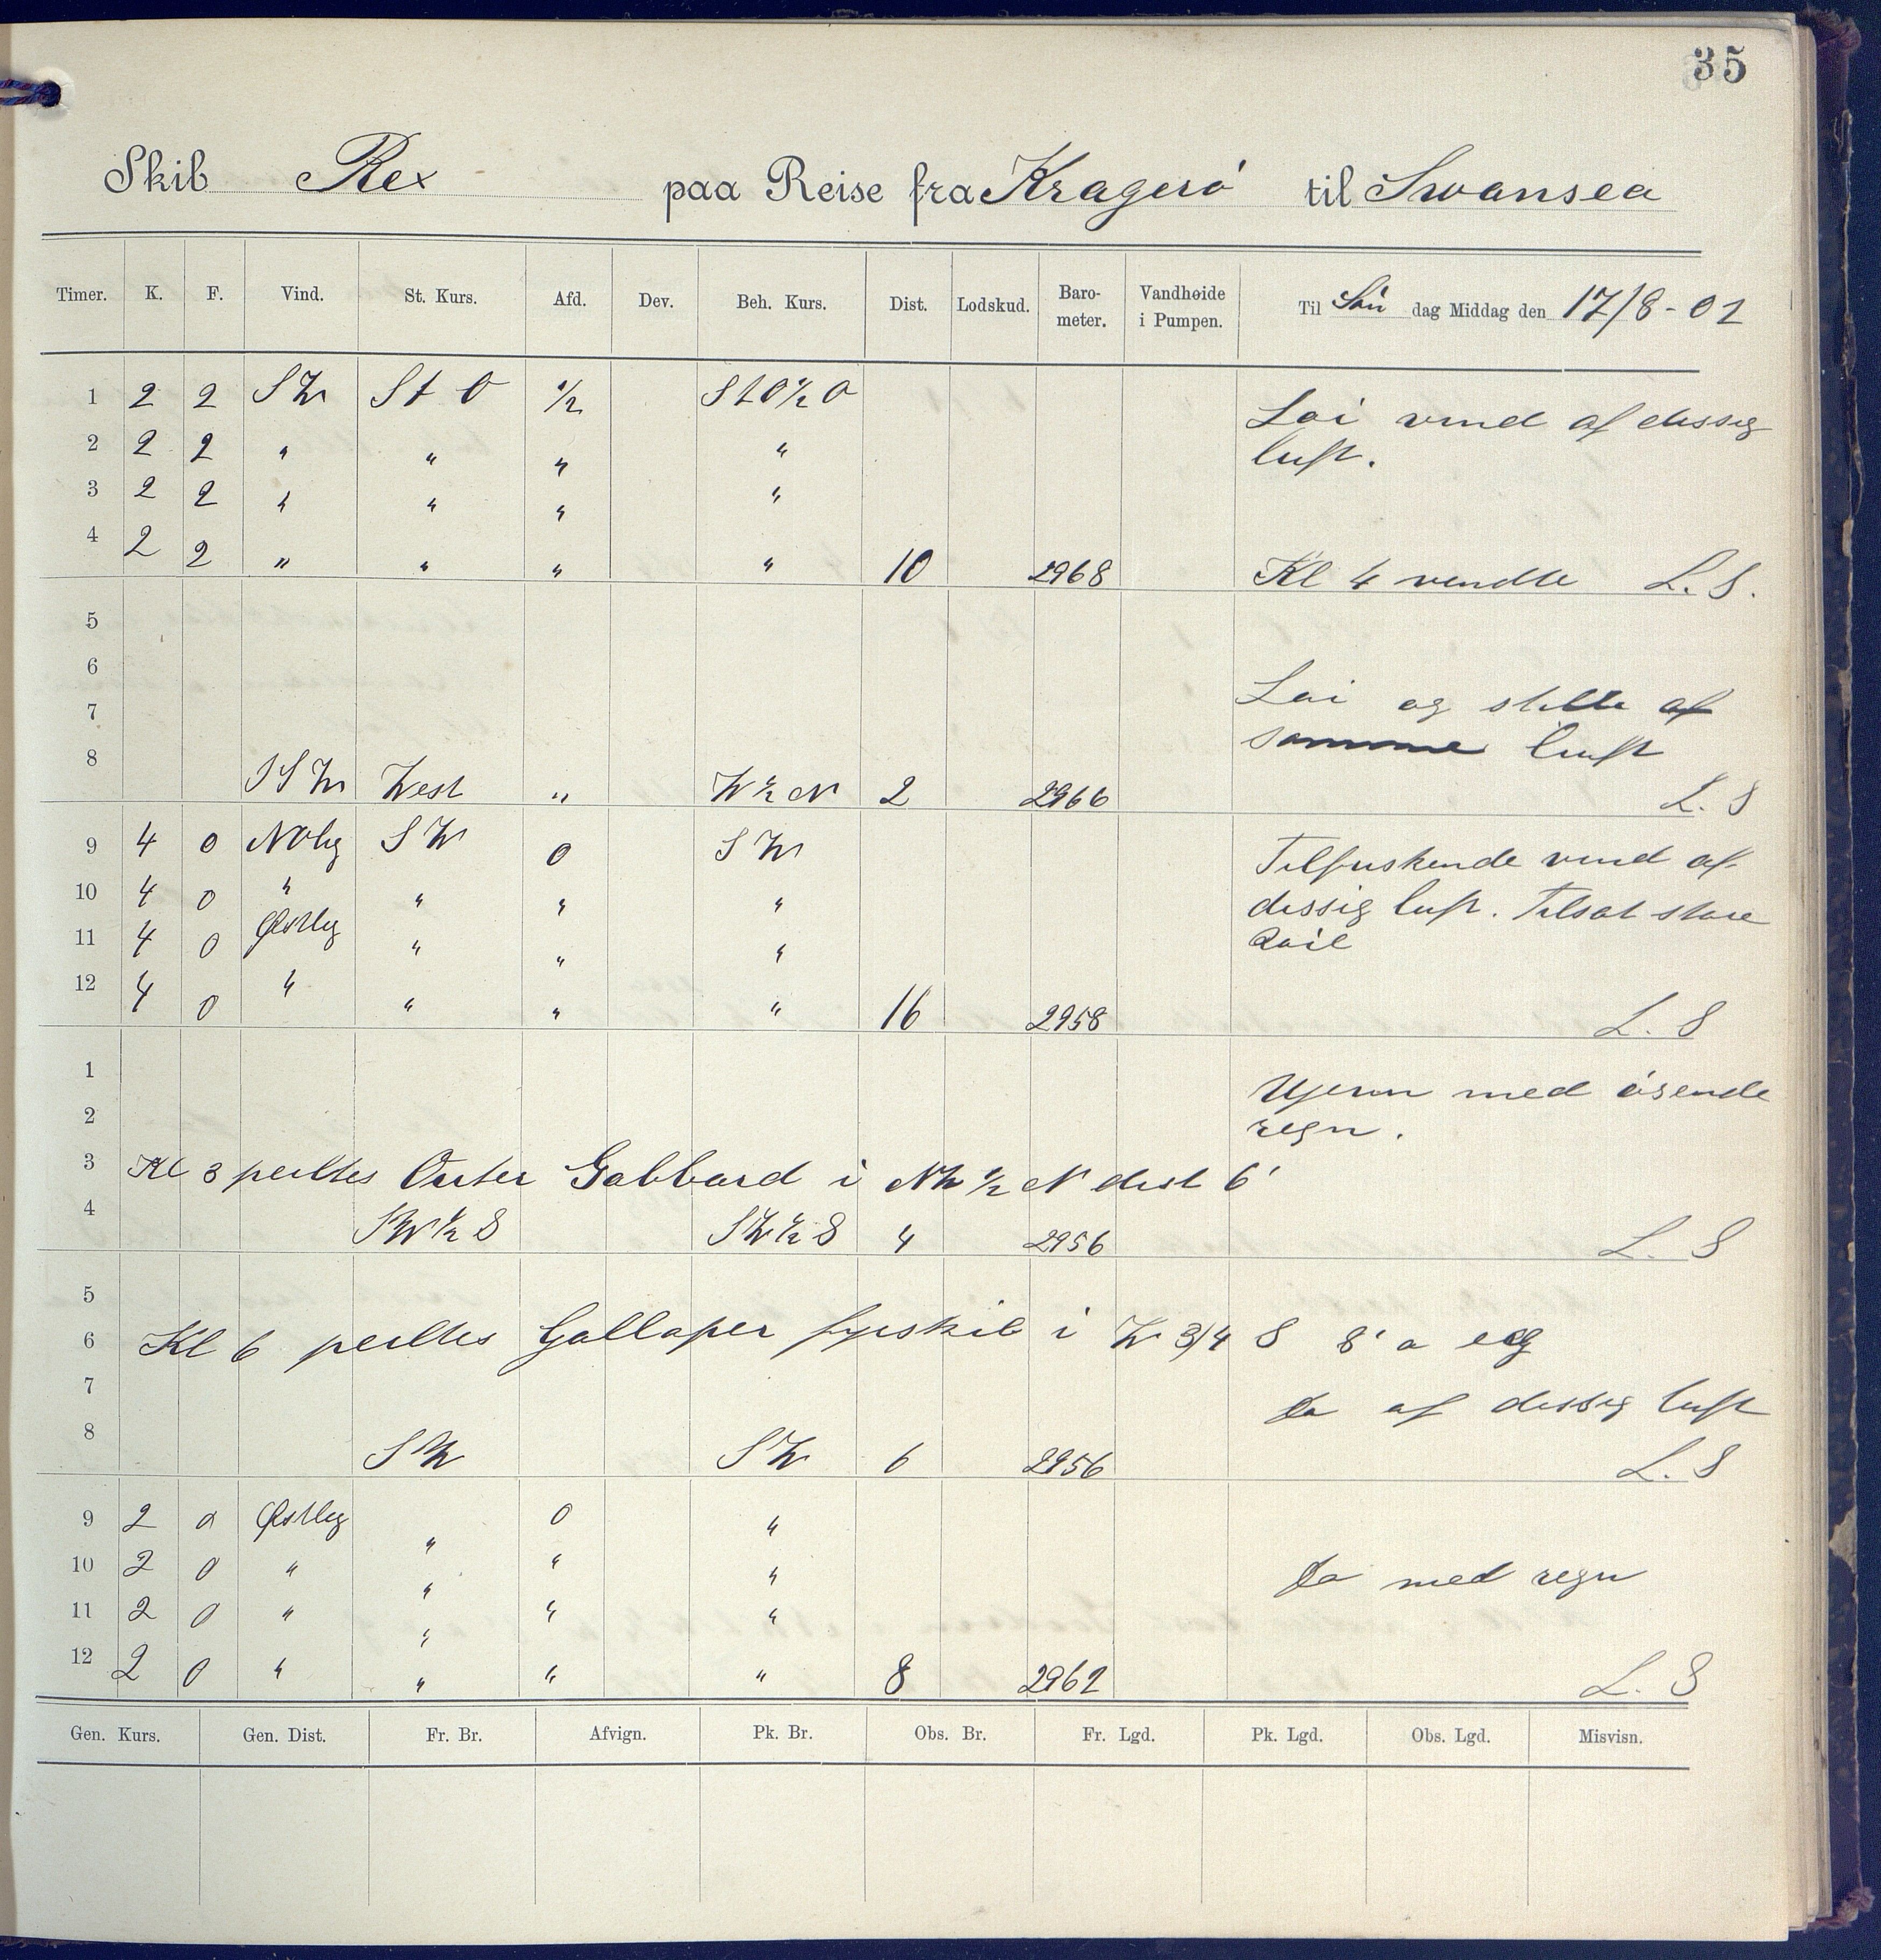 35
Skib Rex paa Reise fra Kragerö til Swansea
Timer. K. F. Vind. St. Kurs. Afd. Dev. Beh. Kurs. Dist. Lodskud. Baro-meter. Vandhøide i Pumpen. Til Søn dag Middag den 17/8-02
1 2 2 SW St O 1/2 St O 1/2 O Loi vind af dissig
2 2 2 " " " " luft.
3 2 2 " " " "
4 2 2 " " " " 10 2968 Kl 4 vendte L. S.
5
6
7 Loi og stille af
8 SSW West " W 1/2 N 2 2966 samme luft L. S
9 4 0 NOlig SW 0 SW Tilfriskende vind af
10 4 0 " " " " dissig luft. Tilsat store
11 4 0 Østlig " " " Rail
12 4 0 " " " " 16 2958 L. S
1 Ujevn med øsende
2 regn.
3 Kl 3 peiltes Outer Gabbard i NW 1/2 N dist 6'
4 SW 1/2 S SW 1/2 S 4 2956 L. S
5
6 Kl 6 peiltes Gallaper fyrskib i W 3/4 S 8' a
7 Do af dissig luft
8 SW SW 6 2956 L. S
9 2 0 Østlig " 0 "
10 2 0 " " " " Do med regn
11 2 0 " " " "
12 2 0 " " " " 8 2962 L. S
Gen. Kurs. Gen. Dist. Fr. Br. Afvign. Pk. Br. Obs. Br. Fr. Lgd. Pk. Lgd. Obs. Lgd. Misvisn.